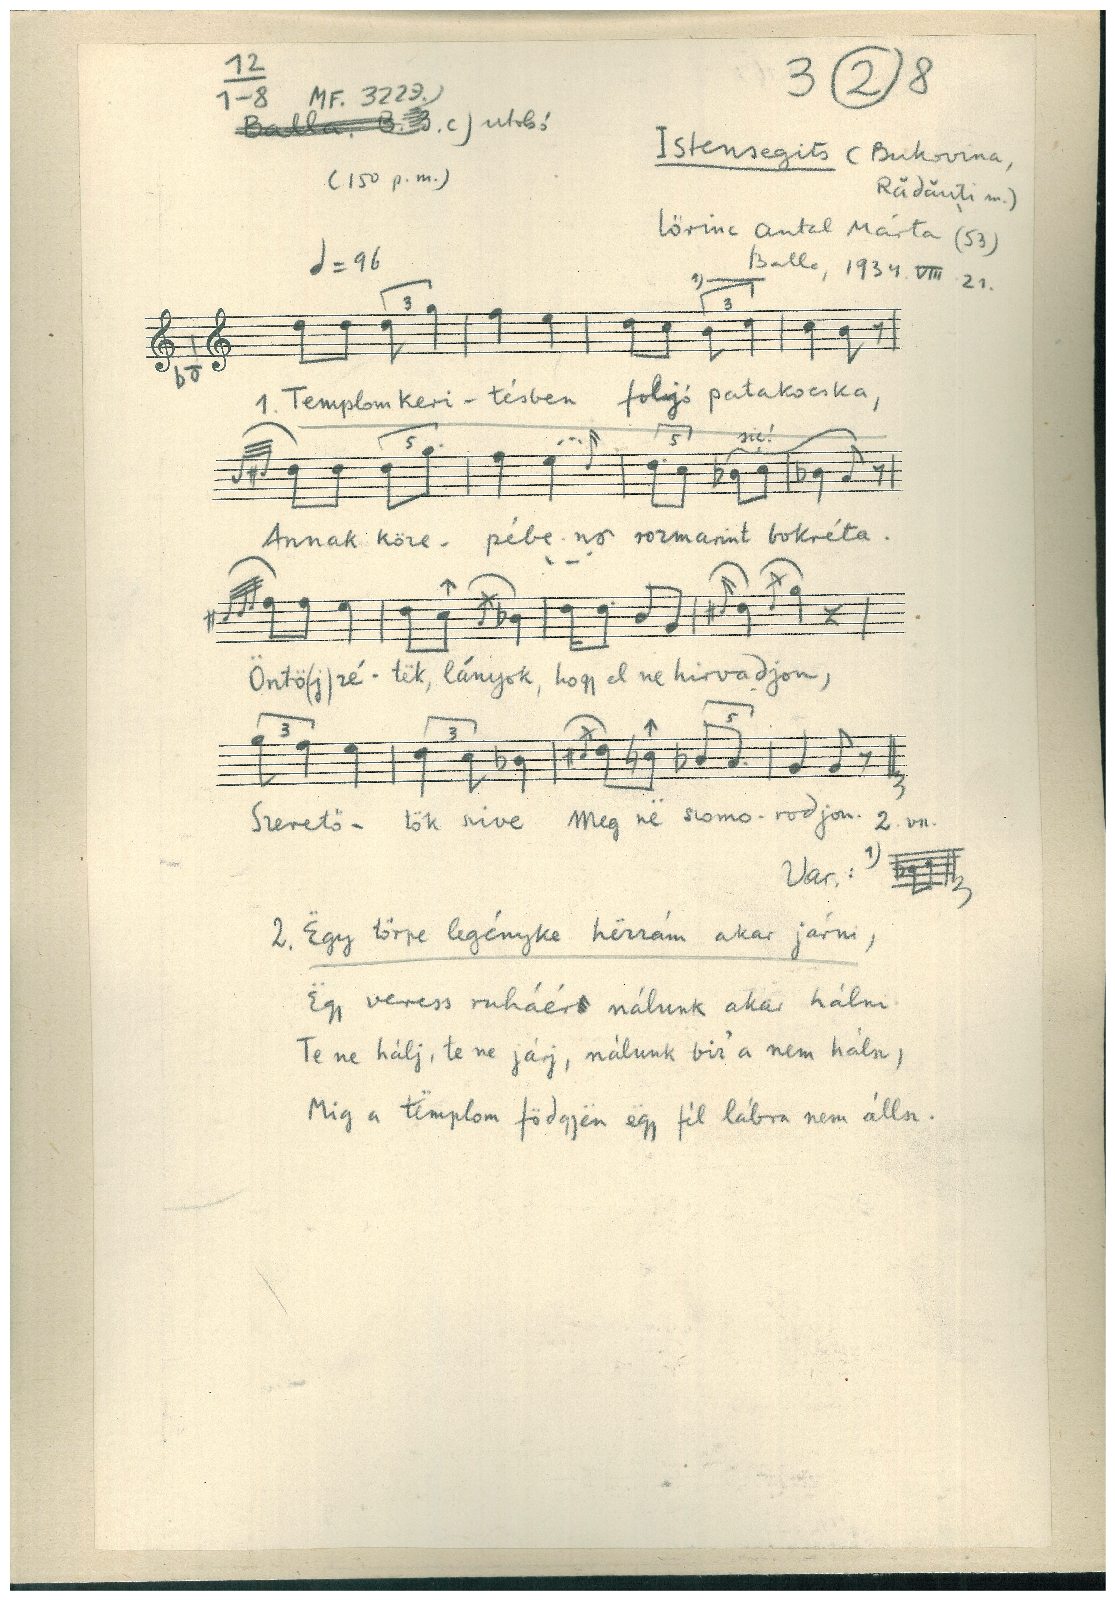 12
1-8 MF. 3229.)
Balla. B. B. c) utolsó
(150 p. m.)
3 2 8
Istensegits (Bukovina,
Rădăuți m.)
Lőrinc Antal Márta (53)
Balla, 1934. VIII 21.
♩ = 96
1) 3 3
1. Templomkeri-tésben folyó patakocska,
5 5 sic!
Annak köze-pébe nő rozmarint bokréta.
Öntö(j)zé-tëk, lányok, hogy el ne hirvadjon,
3 3 5
Szerető-tök szive Meg në szomo-rodjon. 2. vsz.
Var.: 1)
2. Ëgy törpe legényke hëzzám akar járni,
Ëgy veress ruháér nálunk akar hálni
Te ne hálj, te ne járj, nálunk biz'a nem hálsz,
Mig a tëmplom födgyën ëgy fél lábra nem állsz.